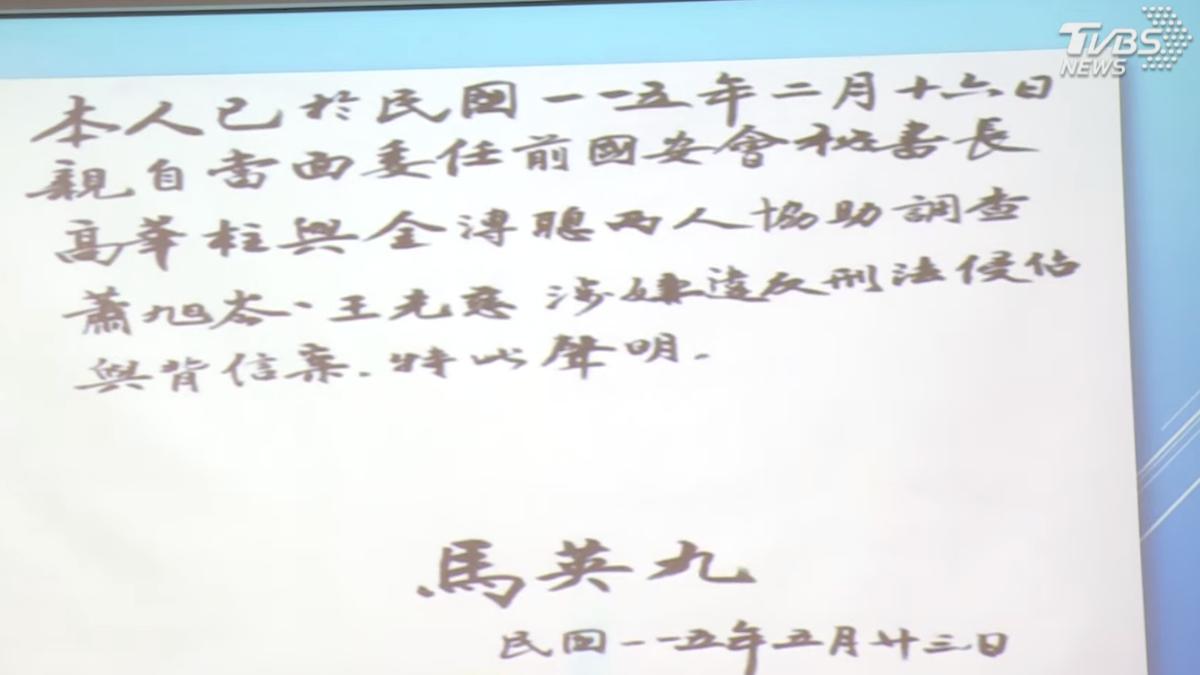 TVBS
NEWS
本人已於民國一一五年二月十六日
親自當面委任前國安會秘書長
高華柱與金溥聰兩人協助調查
蕭旭岑、王光慈涉嫌違反刑法侵佔
與背信案.特此聲明.
馬英九
民國一一五年五月廿三日